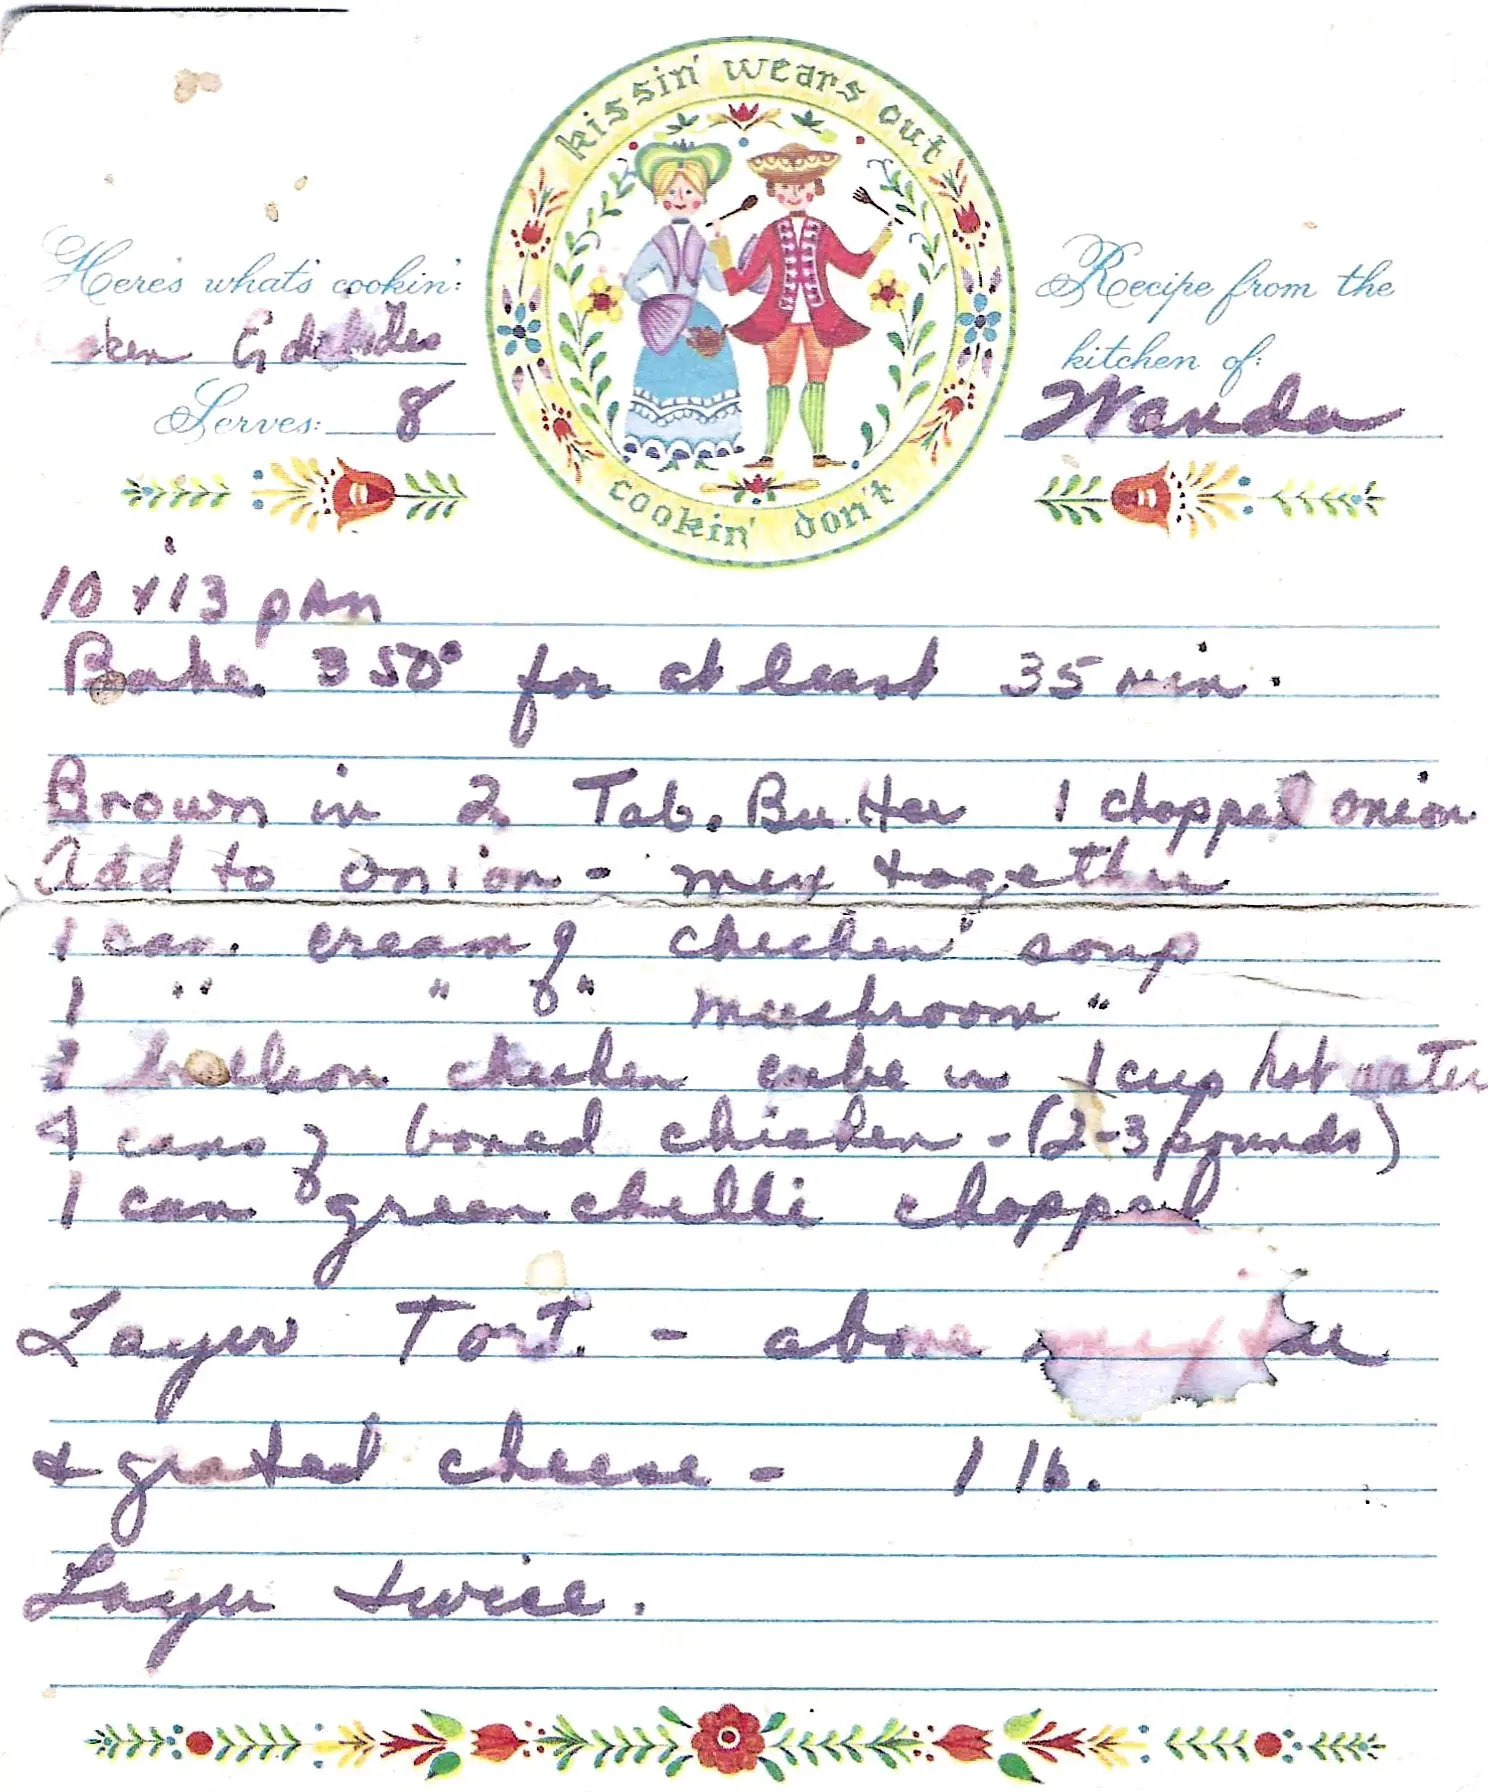 kissin' wears out
cookin' don't
Here's what's cookin':
Serves: 8
Recipe from the
kitchen of:
Wanda
10 x 13 pan
Bake 350° for at least 35 min.
Brown in 2 Tab. Butter 1 chopped onion
add to onion - mix together
1 can cream of chicken soup
1 " " of " mushroom "
1 chicken cube in 1 cup hot water
cans of boned chicken - (2-3 pounds)
1 can green chelli chopped
Layer Tort. - above
& grated cheese - 1 lb.
Layer twice.